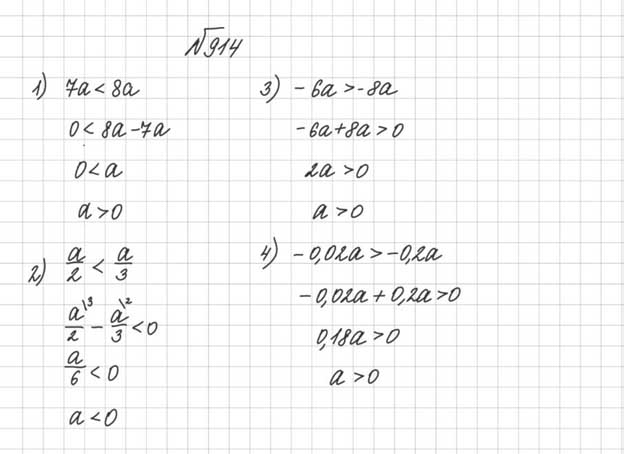 №914
1) 7a < 8a
0 < 8a - 7a
0 < a
a > 0
2) a/2 < a/3
a\3/2 - a\2/3 < 0
a/6 < 0
a < 0
3) - 6a > -8a
-6a + 8a > 0
2a > 0
a > 0
4) - 0,02a > -0,2a
- 0,02a + 0,2a > 0
0,18a > 0
a > 0